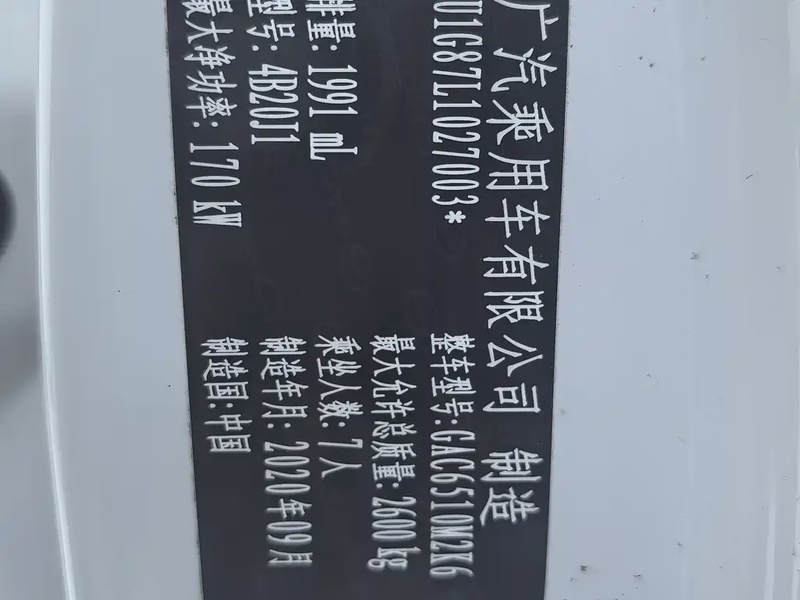 广汽乘用车有限公司 制造
U1G87L1027003* 整车型号:GAC6510M2K6
最大允许总质量: 2600 kg
排量: 1991 mL 乘坐人数: 7人
型号: 4B20J1 制造年月: 2020年09月
最大净功率: 170 kW 制造国:中国